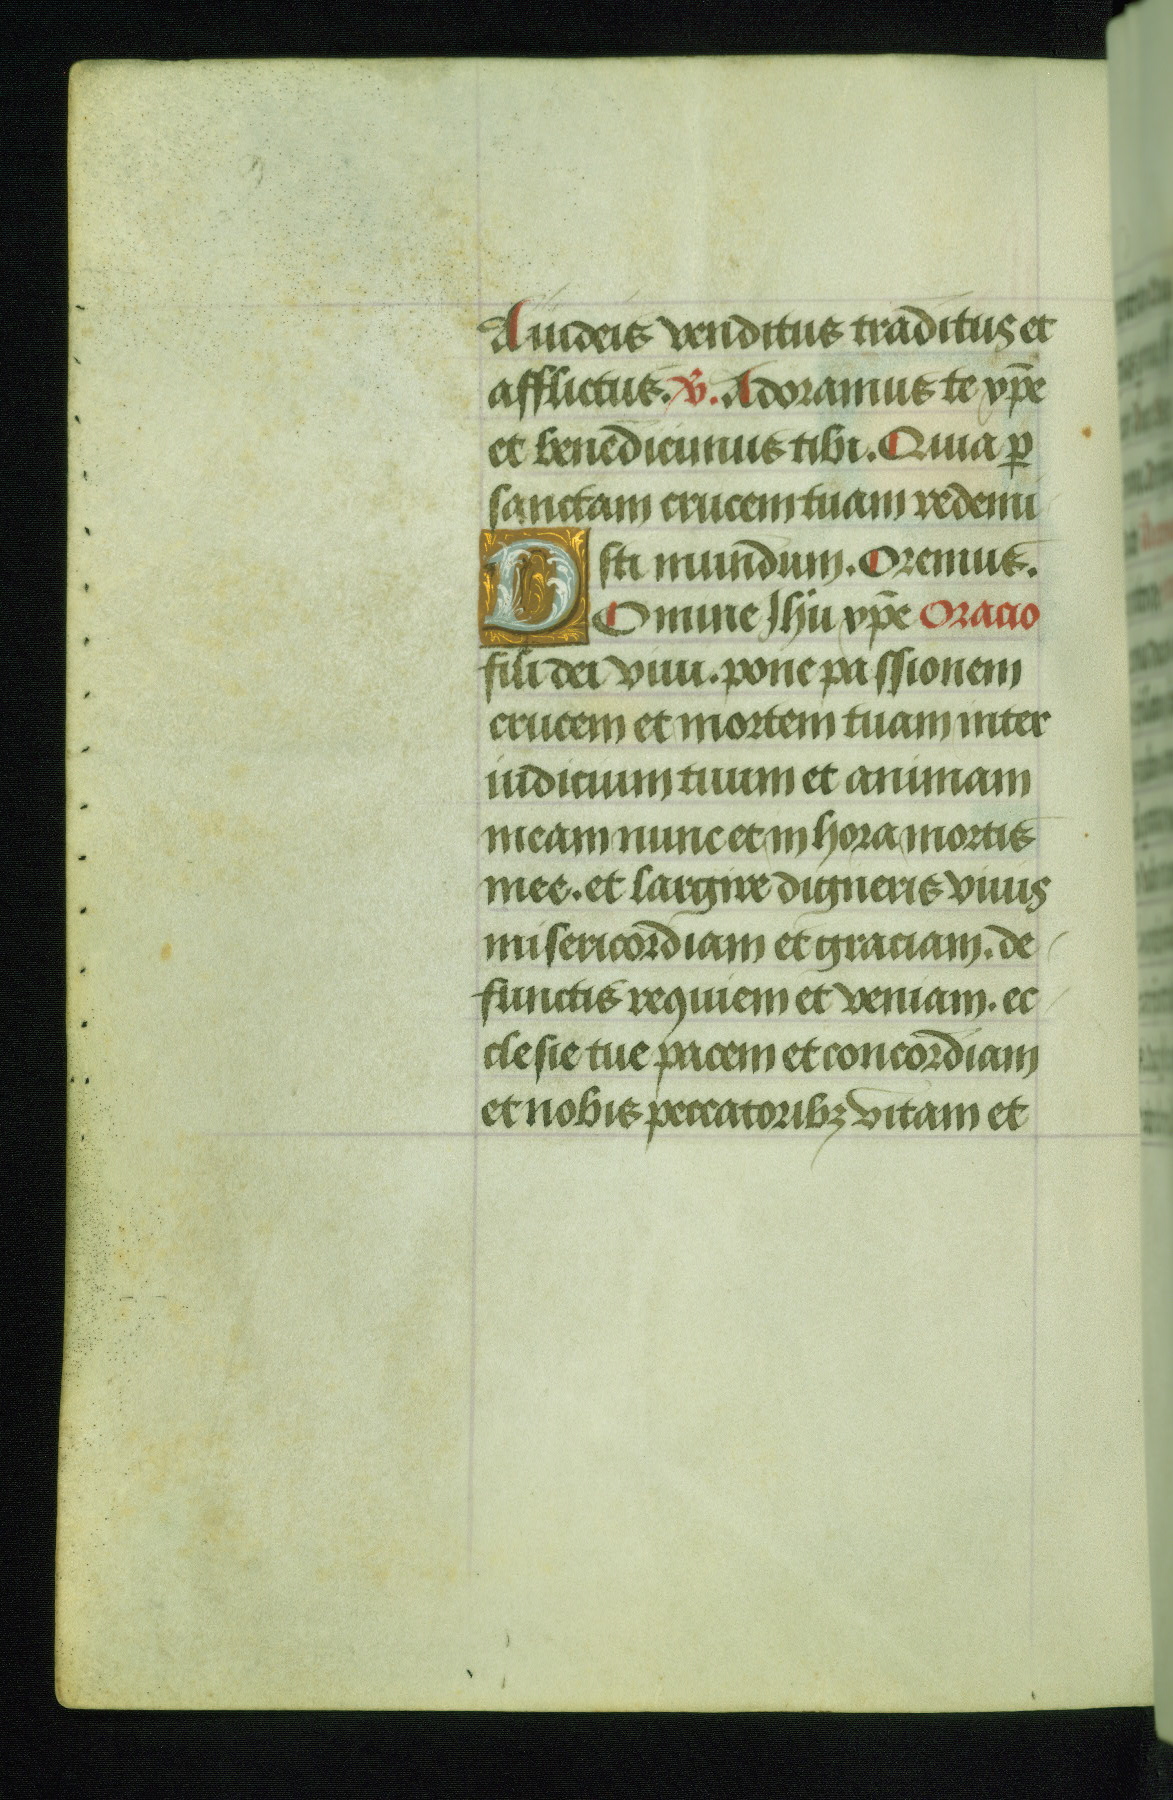 A iudeis venditus traditus et
afflictus. ℣. Adoramus te xp̄e
et benedicimus tibi. Quia ꝑ
sanctam crucem tuam redemi
sti mundum. Oremus.
DOmine Jhu xp̄e Oracio
fili dei viui. pone passionem
crucem et mortem tuam inter
iudicium tuum et animam
meam nunc et in hora mortis
mee. et largire digneris viuis
misericordiam et graciam. de
functis requiem et veniam. ec
clesie tue pacem et concordiam
et nobis peccatoribꝫ vitam et